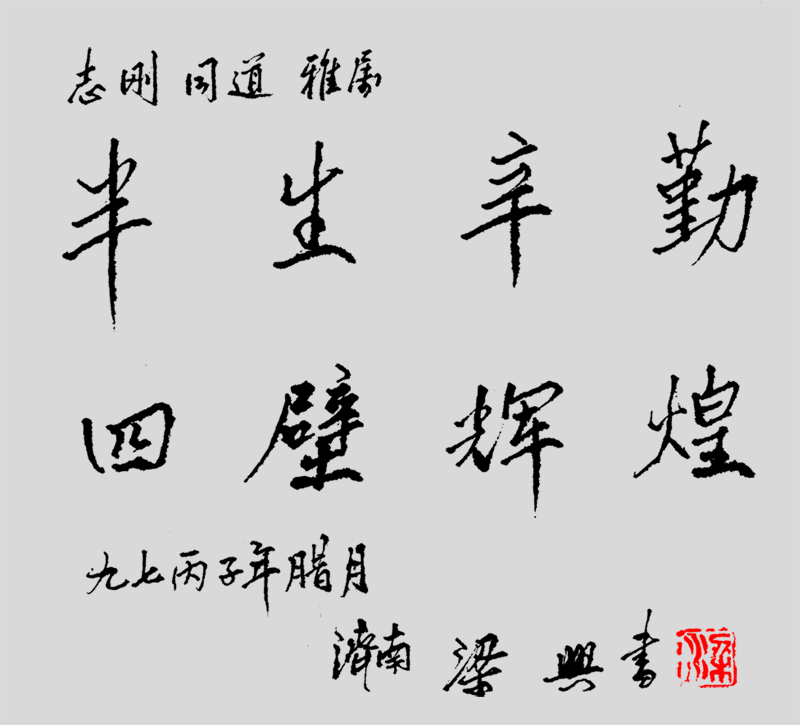 志刚 同道 雅属
半生辛勤
四壁辉煌
九七丙子年腊月
濟南 梁興书
梁